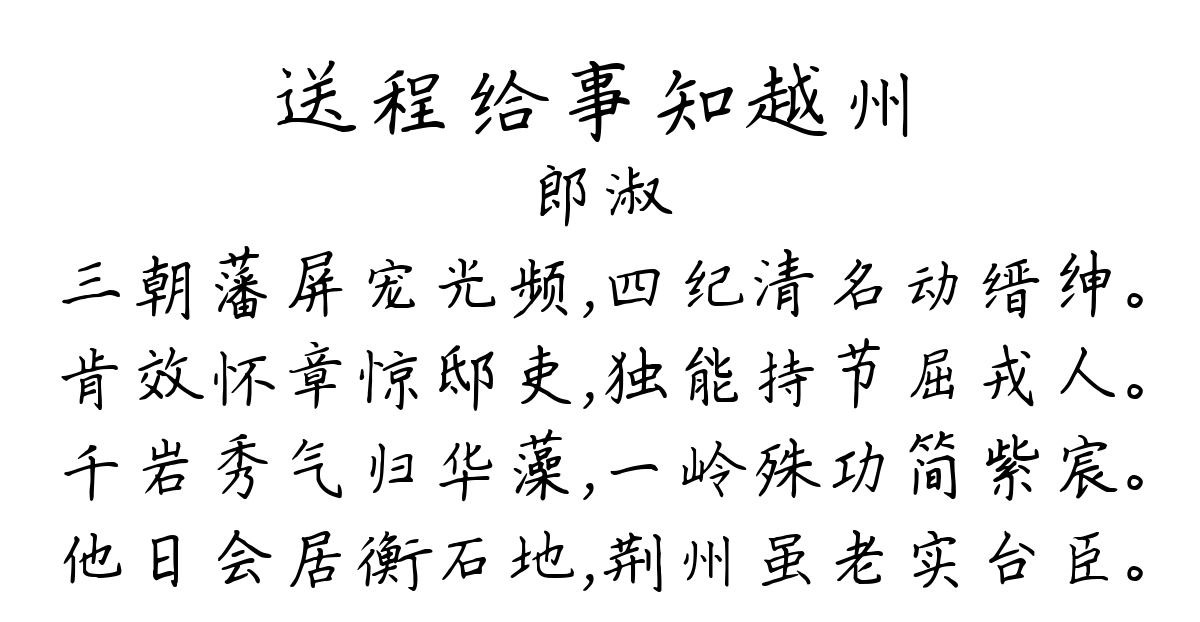 送程给事知越州
郎淑
三朝藩屏宠光频,四纪清名动缙绅。
肯效怀章惊邸吏,独能持节屈戎人。
千岩秀气归华藻,一岭殊功简紫宸。
他日会居衡石地,荆州虽老实台臣。